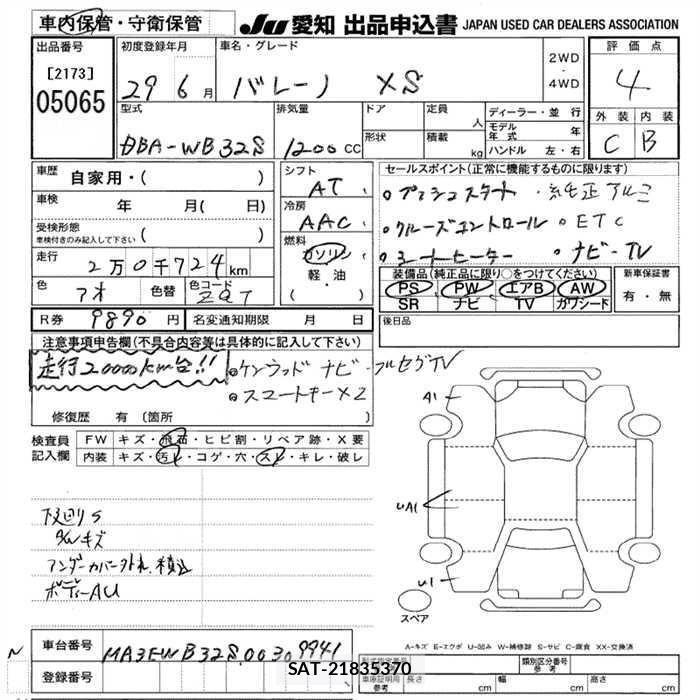 車内保管・守衛保管
JU 愛知 出品申込書 JAPAN USED CAR DEALERS ASSOCIATION
出品番号
[2173]
05065
初度登録年月
29 6 月
車名・グレード
バレーノ XS
2WD
・
4WD
評価点
4
外装 内装
C B
型式
DBA-WB32S
排気量
1200 CC
ドア
形状
定員
人
積載
kg
ディーラー・並行
モデル年式 年
ハンドル 左・右
車歴
自家用・( )
車検
年 月( 日)
受検形態
車検付きのみ記入して下さい ( )
走行
2万0千724km
色
アオ
色替
色コード
ZQT
シフト
AT
冷房
AAC
燃料
ガソリン
軽・油
( )
セールスポイント(正常に機能するものに限ります)
プッシュスタート ・純正アルミ
クルーズコントロール ETC
シートヒーター ナビ・TV
装備品(純正品に限り○をつけてください)
PS PW エアB AW
SR ナビ TV カワシート
新車保証書
有・無
R券 9890 円 名変通知期限 月 日
後日品
注意事項申告欄(不具合内容等は具体的に記入して下さい)
走行20000km台!!
ケンウッドナビ・フルセグTV
スマートキー×2
修復歴 有 (箇所 )
検査員記入欄
FW キズ・飛石・ヒビ割・リペア跡・X要
内装 キズ・汚レ・コゲ・穴・スレ・キレ・破レ
下廻りS
キズ
アンダーカバー外れ、積込
ボディーAU
A1
UA1
U1
スペア
A-キズ E-エクボ U-凹み W-補修跡 S-サビ C-腐食 XX-交換済
車台番号
MA3EWB32S00309941
登録番号
SAT-21835370
類別区分番号
参考
車庫証明用
参考
長さ cm 幅 cm 高さ cm